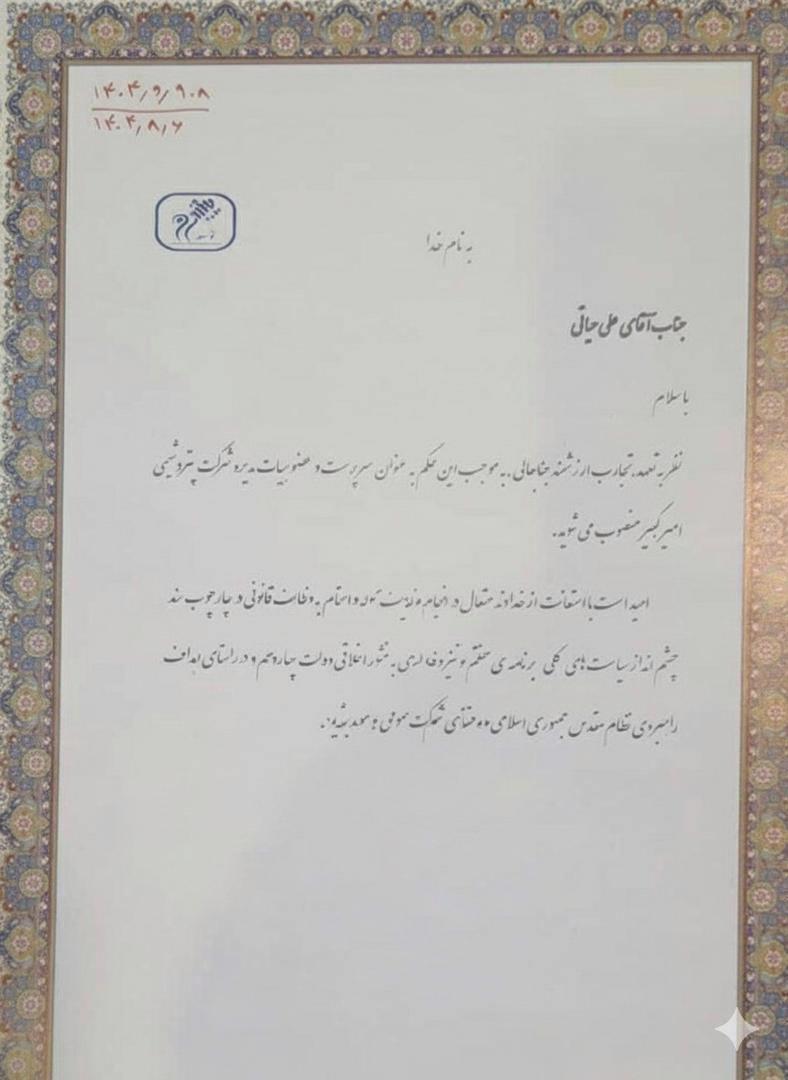 ۱۴۰۴/۹/۹۰۸
۱۴۰۴/۸/۶
به نام خدا
جناب آقای علی حیاتی
با سلام
نظر به تعهد، تجارب ارزشمند جنابعالی، به موجب این حکم به عنوان سرپرست و عضو هیات مدیره شرکت پتروشیمی
امیرکبیر منصوب می شوید.
امید است با استعانت از خداوند متعال در انجام و اهتمام به وظائف قانونی در چارچوب سند
چشم انداز سیاست های کلی برنامه ی هفتم و نیز به منشور اخلاقی دولت چهاردهم و در راستای اهداف
راهبردی نظام مقدس جمهوری اسلامی شرکت موفق و موید باشید.